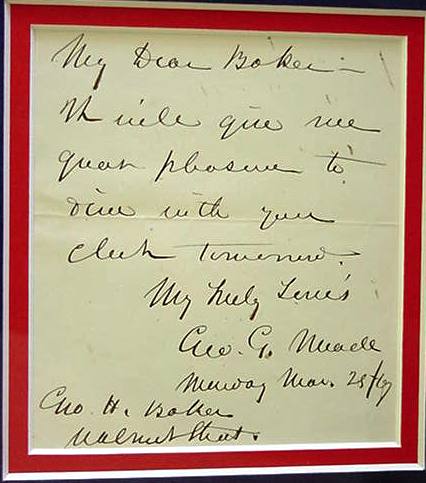 My Dear Boker—
It will give me
great pleasure to
dine with your
club tomorrow.
Very truly yours
Geo. G. Meade
Monday Mar. 25/67
Geo. H. Boker
Walnut Street.